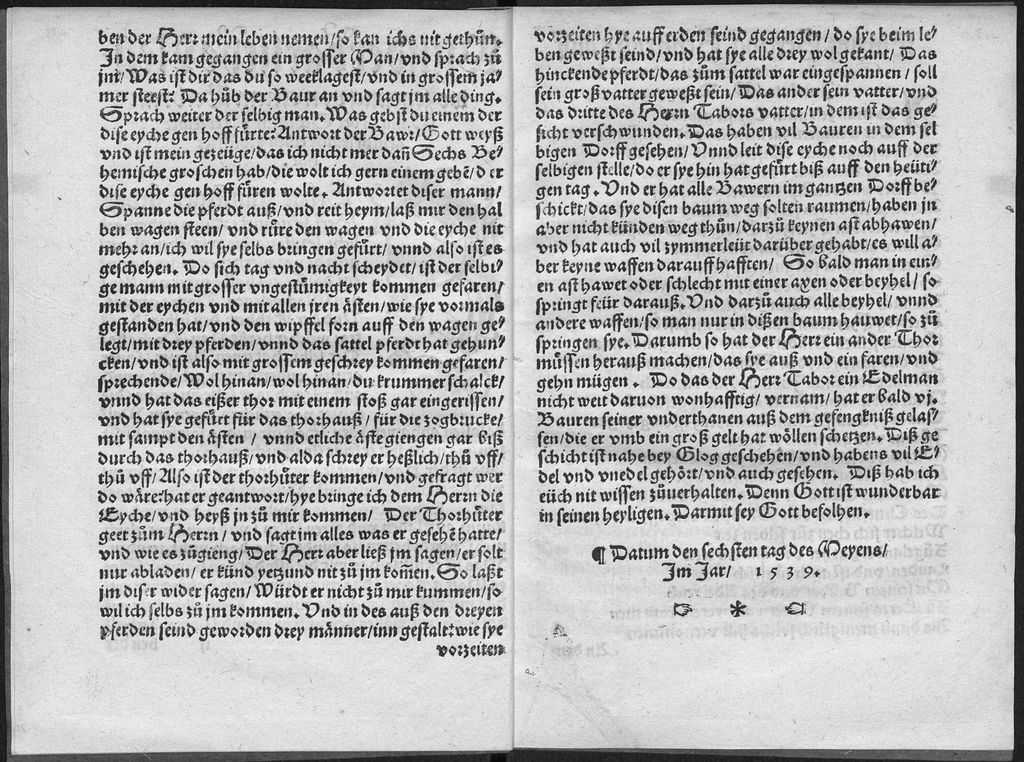 ben der Herr mein leben nemen/so kan ichs nit gethůn.
In dem kam gegangen ein grosser Man/vnd sprach zů
jm/Was ist dir das du so weeklagest/vnd in grossem ja⸗
mer steest? Da hůb der Baur an vnd sagt jm alle ding.
Sprach weiter der selbig man. Was gebst du einem der
dise eyche gen hoff fürte? Antwort der Bawr/Gott weyß
vnd ist mein gezeüge/das ich nicht mer dañ Sechs Be⸗
hemische groschen hab/die wolt ich gern einem gebē/der
dise eyche gen hoff füren wolte. Antwortet diser mann/
Spanne die pferdt auß/vnd reit heym/laß mir den hal
ben wagen steen/ vnd rüre den wagen vnd die eyche nit
mehr an/ich wil sye selbs bringen gefürt/ vnnd also ist es
geschehen. Do sich tag vnd nacht scheydet/ist der selbi⸗
ge mann mit grosser vngestümigkeyt kommen gefaren/
mit der eychen vnd mit allen jren ästen/wie sye vormals
gestanden hat/vnd den wipffel forn auff den wagen ge⸗
legt/mit drey pferden/vnnd das sattel pferdt hat gehun⸗
cken/vnd ist also mit grossem geschrey kommen gefaren/
sprechende/Wol hinan/wol hinan/du krummer schalck/
vnnd hat das eißer thor mit einem stoß gar eingerissen/
vnd hat sye gefürt für das thorhauß/ für die zogbrucke/
mit sampt den ästen / vnnd etliche äste giengen gar biß
durch das thorhauß/vnd alda schrey er heßlich/thů vff/
thů vff/ Also ist der thorhüter kommen/vnd gefragt wer
do wäre? hat er geantwort/hye bringe ich dem Herrn die
Eyche/vnd heyß jn zů mir kommen/ Der Thorhüter
geet zům Herrn/ vnd sagt im alles was er gesehē hatte/
vnd wie es zůgieng/ Der Herr aber ließ jm sagen/er solt
nur abladen/ er künd yetzund nit zů jm koṁen. So laßt
jm diser wider sagen/ Würdt er nicht zů mir kummen/so
wil ich selbs zů jm kommen. Vnd in des auß den dreyen
pferden seind geworden drey männer/inn gestalt/wie sye
vorzeiten
vorzeiten hye auff erden seind gegangen/ do sye beim le⸗
ben geweßt seind/vnd hat sye alle drey wol gekant/ Das
hinckende pferdt/das zům sattel war eingespannen/ soll
sein groß vatter geweßt sein/ Das ander sein vatter/vnd
das dritte des Herrn Tabors vatter/in dem ist das ge⸗
sicht verschwunden. Das haben vil Bauren in dem sel
bigen Dorff gesehen/ Vnnd leit dise eyche noch auff der
selbigen stelle/do er sye hin hat gefürt biß auff den heüti⸗
gen tag. Vnd er hat alle Bawern im gantzen Dorff be⸗
schickt/das sye disen baum weg solten raumen/haben jn
aber nicht künden weg thůn/darzů keynen ast abhawen/
vnd hat auch vil zymmerleüt darüber gehabt/es will a⸗
ber keyne waffen darauff hafften/ So bald man in ein⸗
en ast hawet oder schlecht mit einer axen oder beyhel/ so
springt feür darauß. Vnd darzů auch alle beyhel/ vnnd
andere waffen/so man nur in dißen baum hauwet/so zů
springen sye. Darumb so hat der Herr ein ander Thor
müssen herauß machen/das sye auß vnd ein faren/vnd
gehn mügen. Do das der Herr Tabor ein Edelman
nicht weit daruon wonhafftig/ vernam/hat er bald vj.
Bauren seiner vnderthanen auß dem gefengkniß gelas⸗
sen/die er vmb ein groß gelt hat wöllen schetzen. Diß ge
schicht ist nahe bey Glog geschehen/vnd habens vil E⸗
del vnd vnedel gehört/vnd auch gesehen. Diß hab ich
eüch nit wissen zůuerhalten. Denn Gott ist wunderbar
in seinen heyligen. Darmit sey Gott befolhen.
¶ Datum den sechsten tag des Meyens/
Im Jar/ 1539.